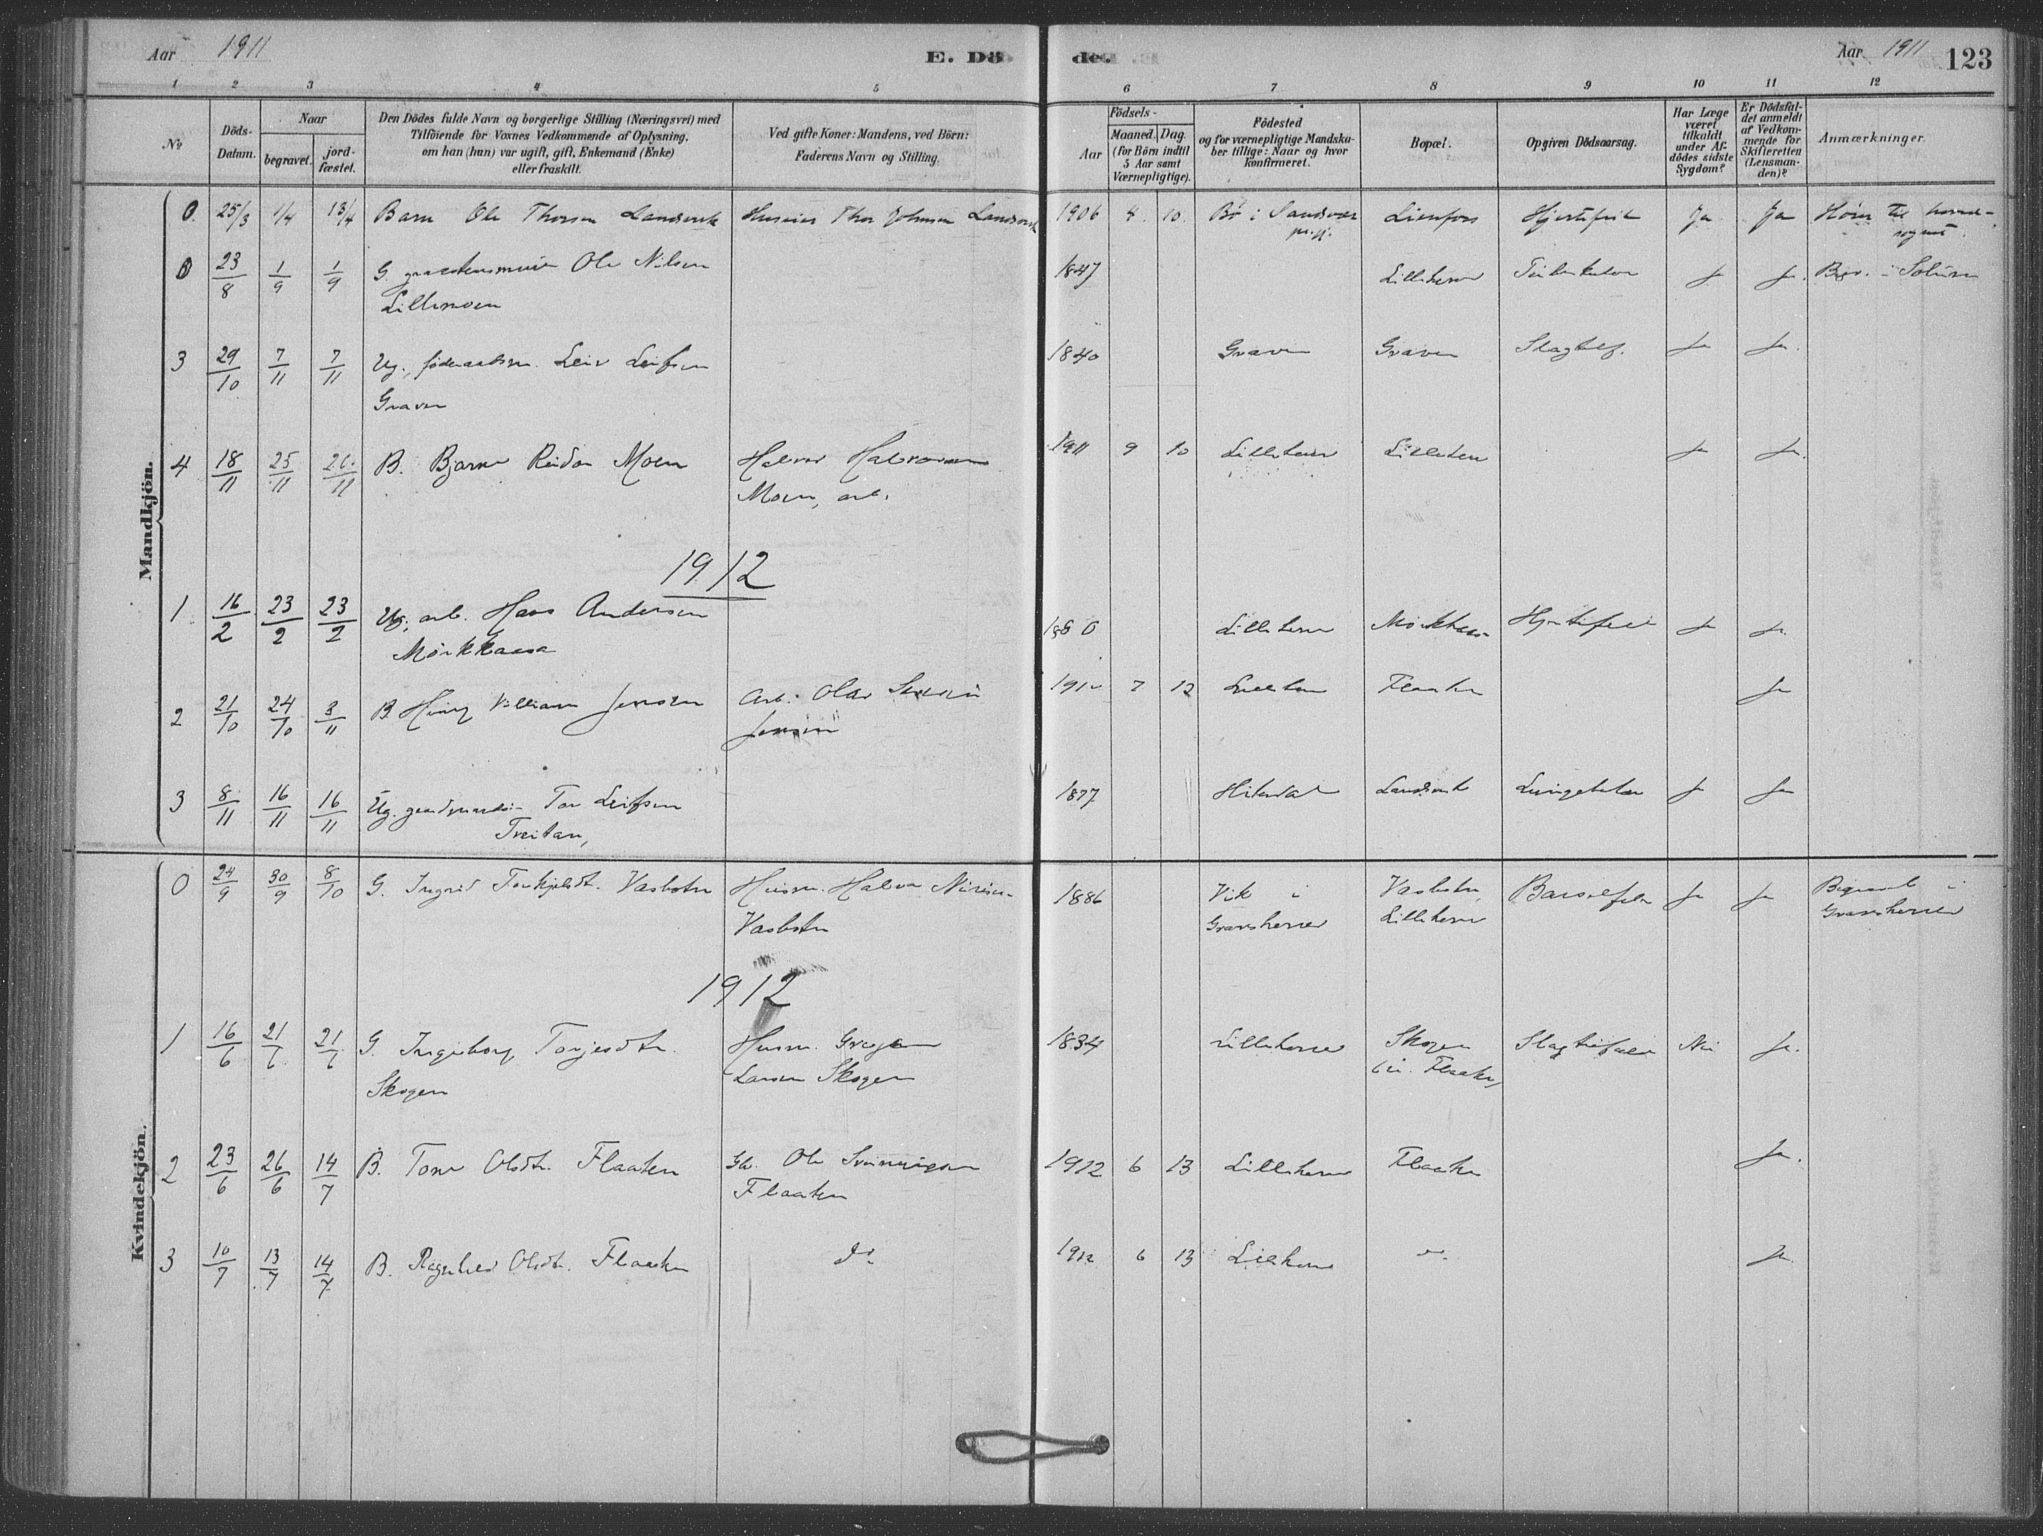 Aar 1911
E. Dö
de.
Aar 1911
123
1 2 3 4 5 6 7 8 9 10 11 12
No
Döds-
Datum.
Naar
begravet.
jord-
fæstet.
Den Dödes fulde Navn og borgerlige Stilling (Næringsvei) med
Tilföiende for Voxnes Vedkommende af Oplysning,
om han (hun) var ugift, gift, Enkemand (Enke)
eller fraskilt.
Ved gifte Koner: Mandens, ved Börn:
Faderens Navn og Stilling.
Födsels-
Aar
Maaned. Dag.
(for Börn indtil
5 Aar samt
Værnepligtige).
Födested
og for værnepligtige Mandska-
ber tillige: Naar og hvor
konfirmeret.
Bopæl.
Opgiven Dödsaarsag.
Har Læge
været
tilkaldt
under Af-
dödes sidste
Sygdom?
Er Dödsfal-
det anmeldt
af Vedkom-
mende for
Skifteretten
(Lensman-
den)?
Anmærkninger.
Mandkjön.
0. 25/3 1/4 13/4 Barn Ole Thorsen Landsverk Thor Johnsen Landsverk 1906 10. Bø i Sandsvær Lienfos Hjertefeil Ja Ja Hører til hoved-
prgj. sognet.
0 23/8 1/9 1/9 G. Ole Nilsen 1847 Lilleherre Ja Ja. Begr. i Solum
Lillemoen
3 29/10 7/11 7/11 Ug. Leiv Leifsen 1840 Graven Graven Slagtilf. Ja Ja.
Graven
4 18/11 25/11 26/11 B. Bjarne Reidar Moen Halvor Halvorsen 1911 9 10 Lilleherre Lilleherre Ja Ja.
Moen, arb.
1912
1 16/2 23/2 23/2 Ug. arb. Hans Andersen 1880 Lilleherre Hjertefeil Ja Ja.
Mørkkaasa
2 21/10 24/10 3/11 B William Jensen Arb. Olav 7 12 Flaaten Ja
Jensen
3 8/11 16/11 16/11 Ug. Tor Leifsen 1877 Hiterdal Landsverk Ja Ja
Treitan,
Kvindekjön.
0 24/9 30/9 8/10 G. Ingrid Torkjeldsdt. Vasbotn Husm. Halvor 1886 Vik i Vasbotn, Barselfeber Ja Ja Begravet i
Vasbotn Gransherred Lilleherre Gransherred
1912
1 16/6 21/6 21/6 G. Ingeborg Torjesdtr. Husm. Gregar 1834 Lilleherre Skogen Nei Ja.
Skogen Larsen Skogen Flaaten,
2 23/6 26/6 14/7 B. Tone Olsdtr. Flaaten Ole Sveinungsen 1912 6 13 Lilleherre Flaaten Ja.
Flaaten
3 10/7 13/7 14/7 B. Ragnhild Olsdt. Flaaten do 1912 6 13 Lilleherre Ja